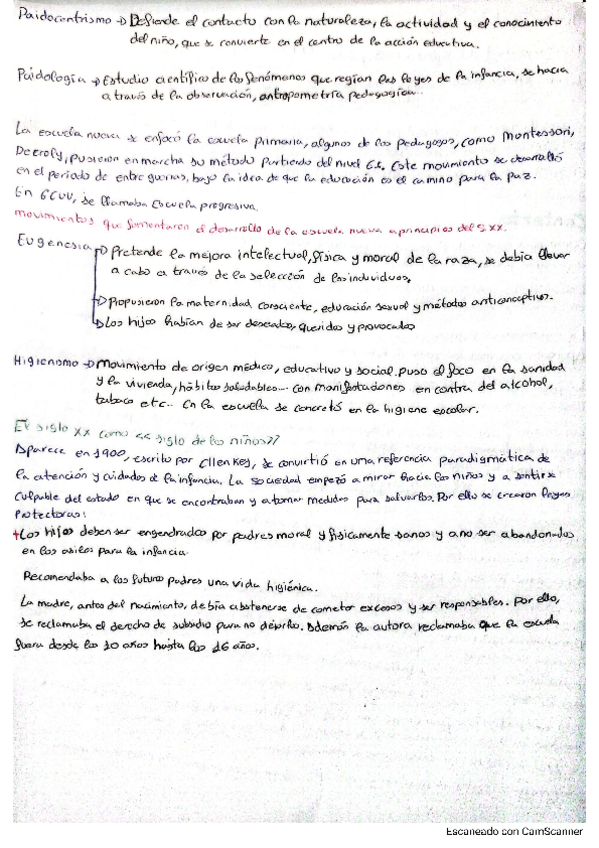 Paidocentrismo → Defiende el contacto con la naturaleza, la actividad y el conocimiento
del niño, que se convierte en el centro de la acción educativa.
Paidología → Estudio científico de los fenómenos que regían las leyes de la infancia, se hacía
a través de la observación, antropometría pedagógica...
La escuela nueva se enfocó la escuela primaria, algunos de los pedagogos, como Montessori,
Decroly, pusieron en marcha su método partiendo del nivel E.I. Este movimiento se desarrolló
en el período de entre guerras, bajo la idea de que la educación es el camino para la paz.
En EEUU, se llamaba Escuela progresiva.
movimientos que fomentaron el desarrollo de la escuela nueva a principios del S.XX.
Eugenesia → Pretende la mejora intelectual, física y moral de la raza, se debía llevar
a cabo a través de la selección de los individuos.
→ Propusieron la maternidad consciente, educación sexual y métodos anticonceptivos.
→ Los hijos habían de ser deseados, queridos y provocados
Higienismo → Movimiento de origen médico, educativo y social. puso el foco en la sanidad
y la vivienda, hábitos saludables... con manifestaciones en contra del alcohol,
tabaco etc... En la escuela se concretó en la higiene escolar.
El siglo XX como << siglo de los niños>>
Aparece en 1900, escrito por Ellen Key, se convirtió en una referencia paradigmática de
la atención y cuidados de la infancia. La sociedad empezó a mirar hacia los niños y a sentirse
culpable del estado en que se encontraban y a tomar medidas para salvarlos. Por ello se crearon leyes
protectoras:
+Los hijos deben ser engendrados por padres moral y físicamente sanos y a no ser abandonados
en los asilos para la infancia.
Recomendaba a los futuros padres una vida higiénica.
La madre, antes del nacimiento, debía abstenerse de cometer excesos y ser responsables. Por ello,
se reclamaba el derecho de subsidio para no dejarlo. Además la autora reclamaba que la escuela
fuera desde los 10 años hasta los 16 años.
Escaneado con CamScanner